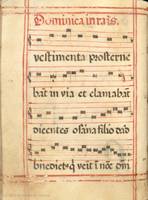 Dominica in ramis.
vestimenta prosterne
bāt in via et clamabāt
dicentes osāna filio dad
bnedict9 q̄ veit ī noē dm̄